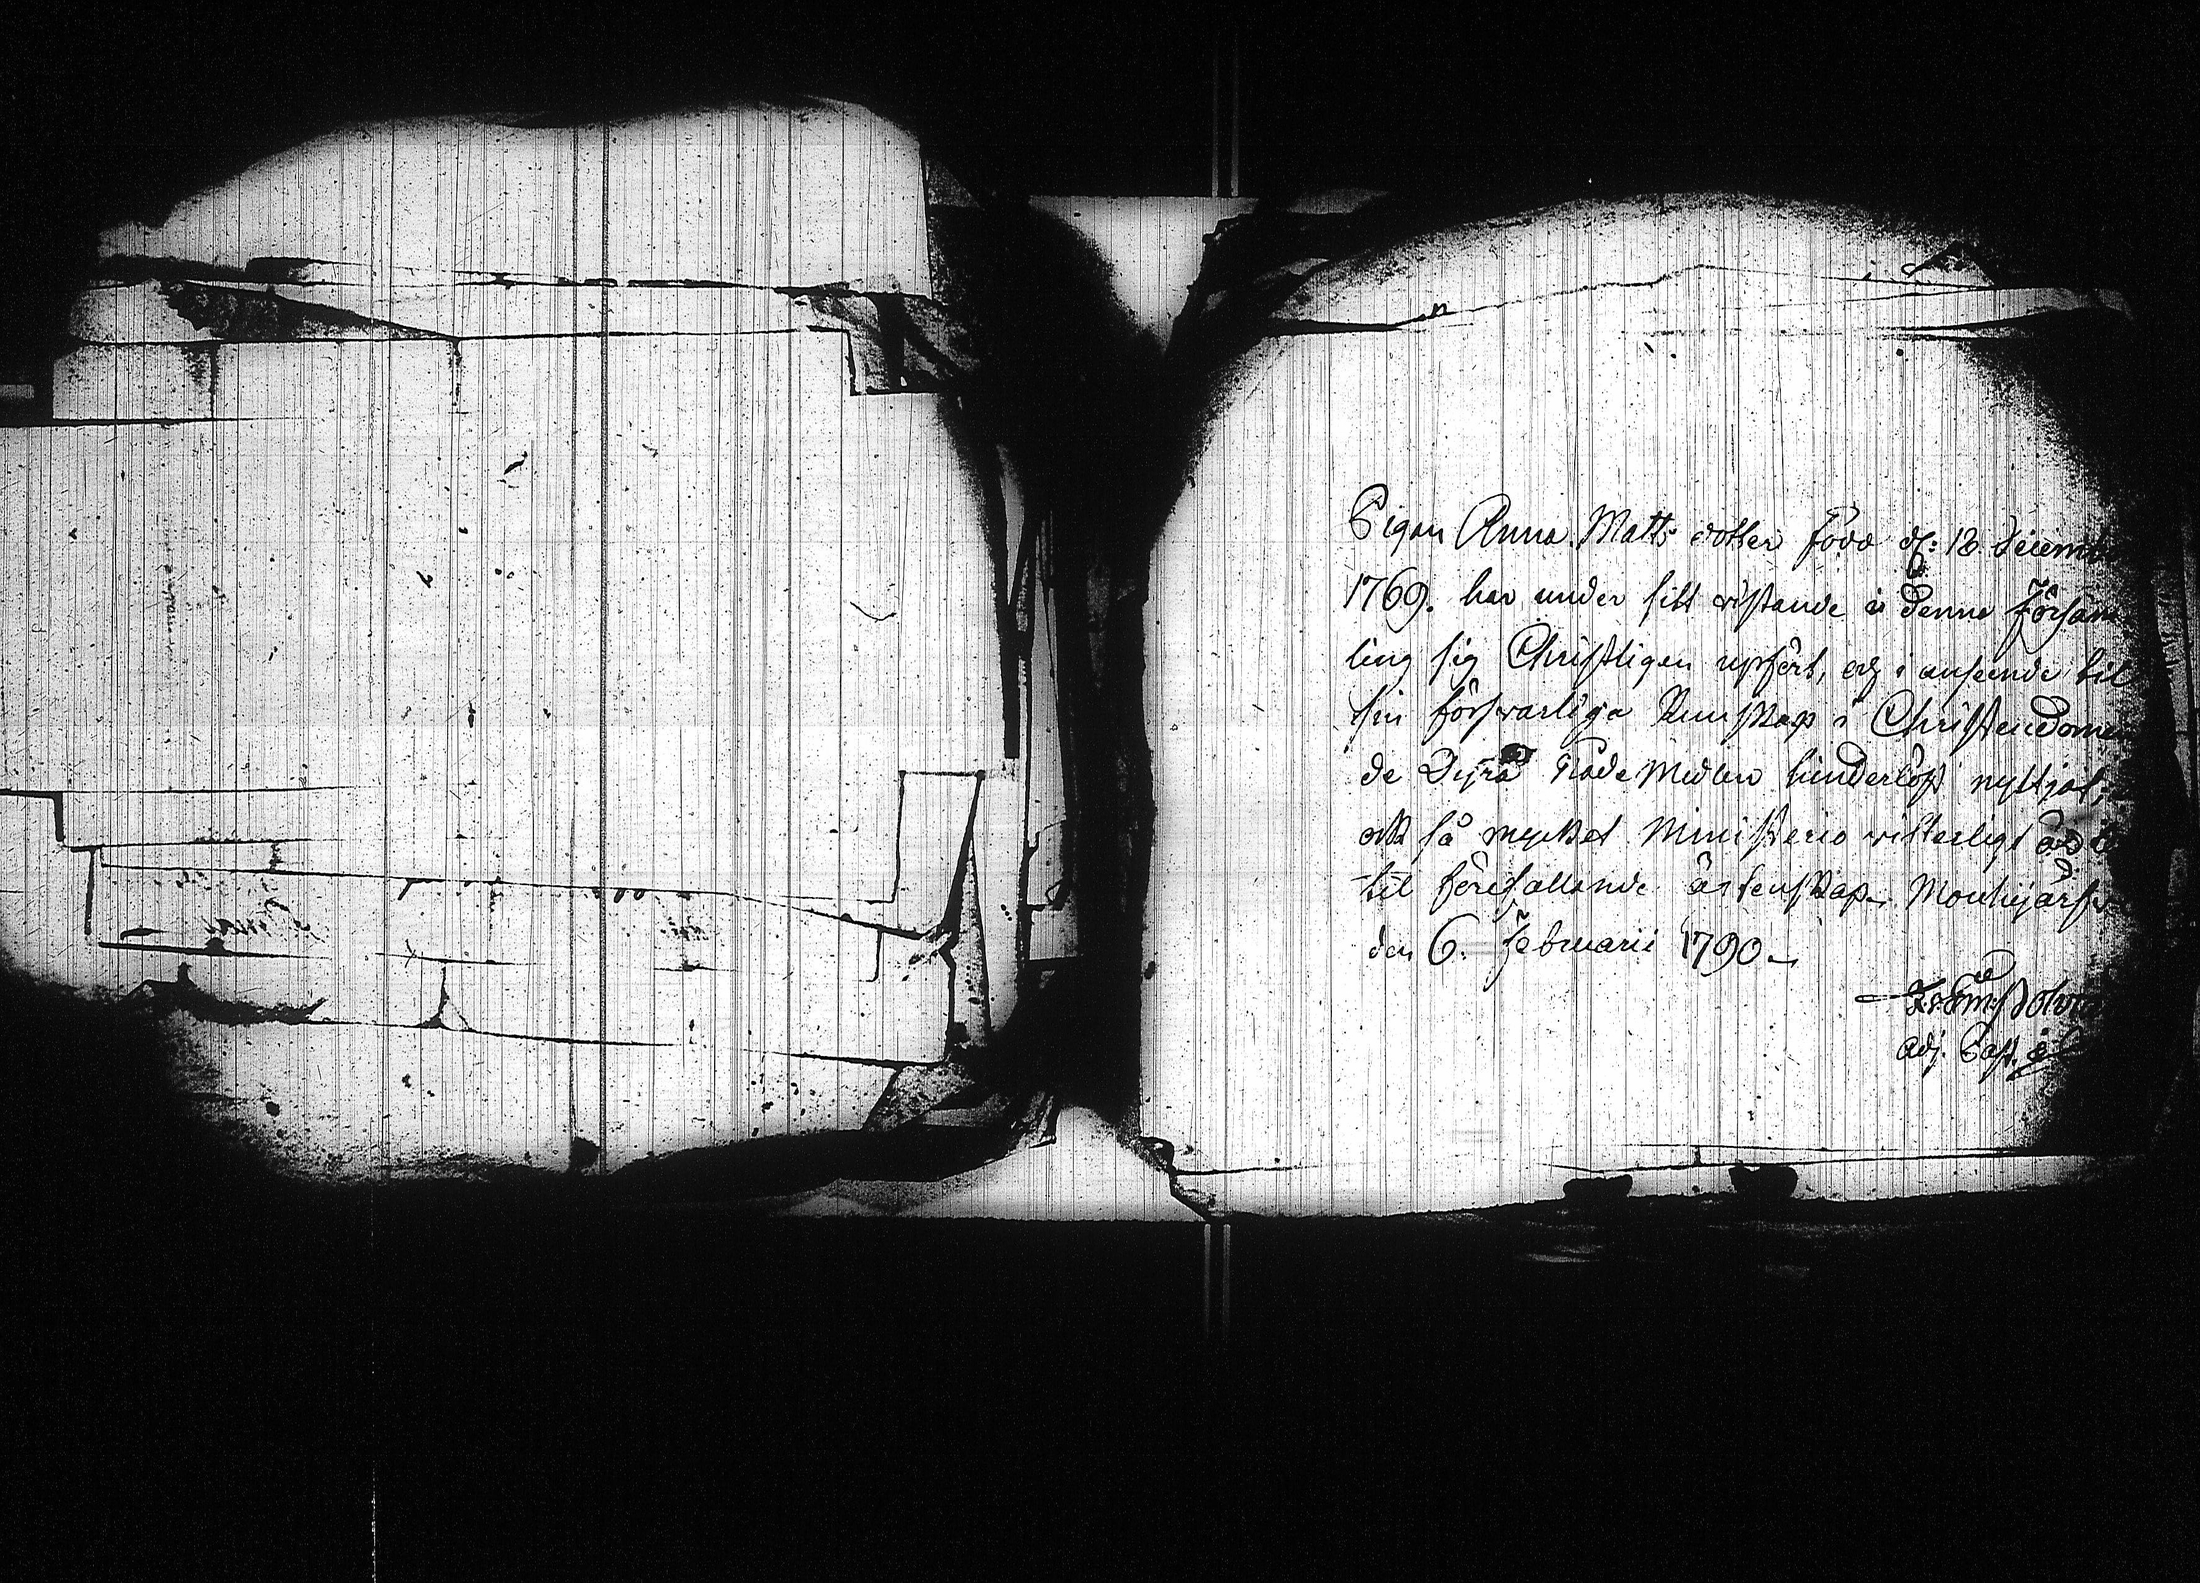 Pigan Anna Matts dotter född d: 18 Decemb
1769. har under sitt vistande i denna Försam
ling sig Christligen upfört, och i anseende til
sin försvarliga Kunskap i Christendomen
de Dyra Nåde Medlen hinderlöst nyttjat;
och så mycket Ministerio vitterligt är
til förefallande ägtenskap. Mouhijärfvi
den 6. Februarii 1790
Adj. Past.